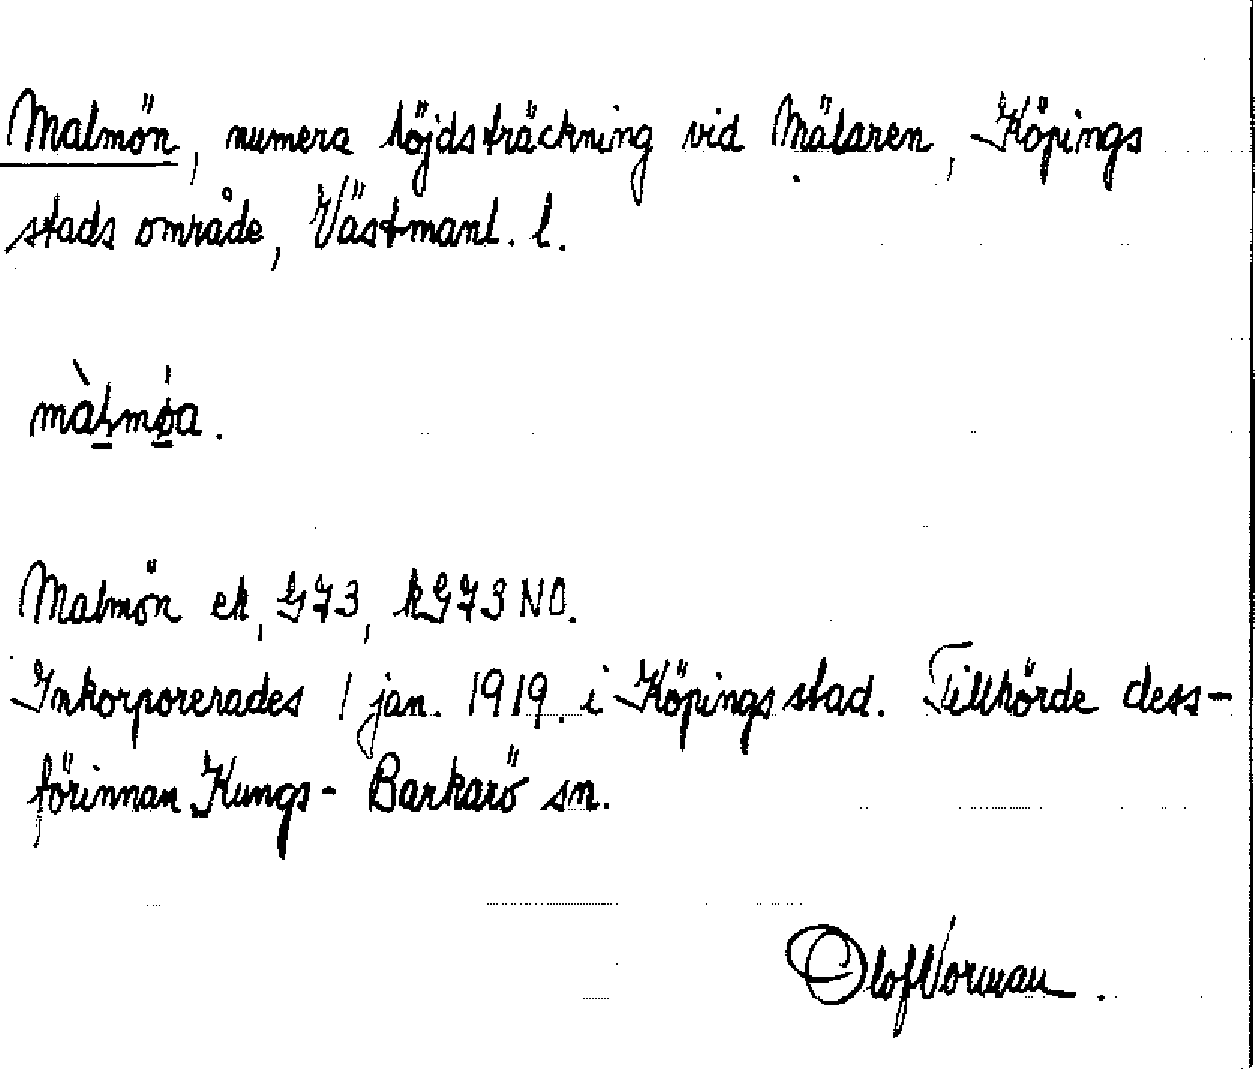 Malmön, numera höjdsträckning vid Mälaren, Köpings
stads område, Västmanl. l.
màlmøa.
Malmön ek, G73, kG73 NO.
Inkorporerades 1 jan. 1919 i Köpings stad. Tillhörde dess-
förinnan Kungs- Barkarö sn.
Olof Norman.